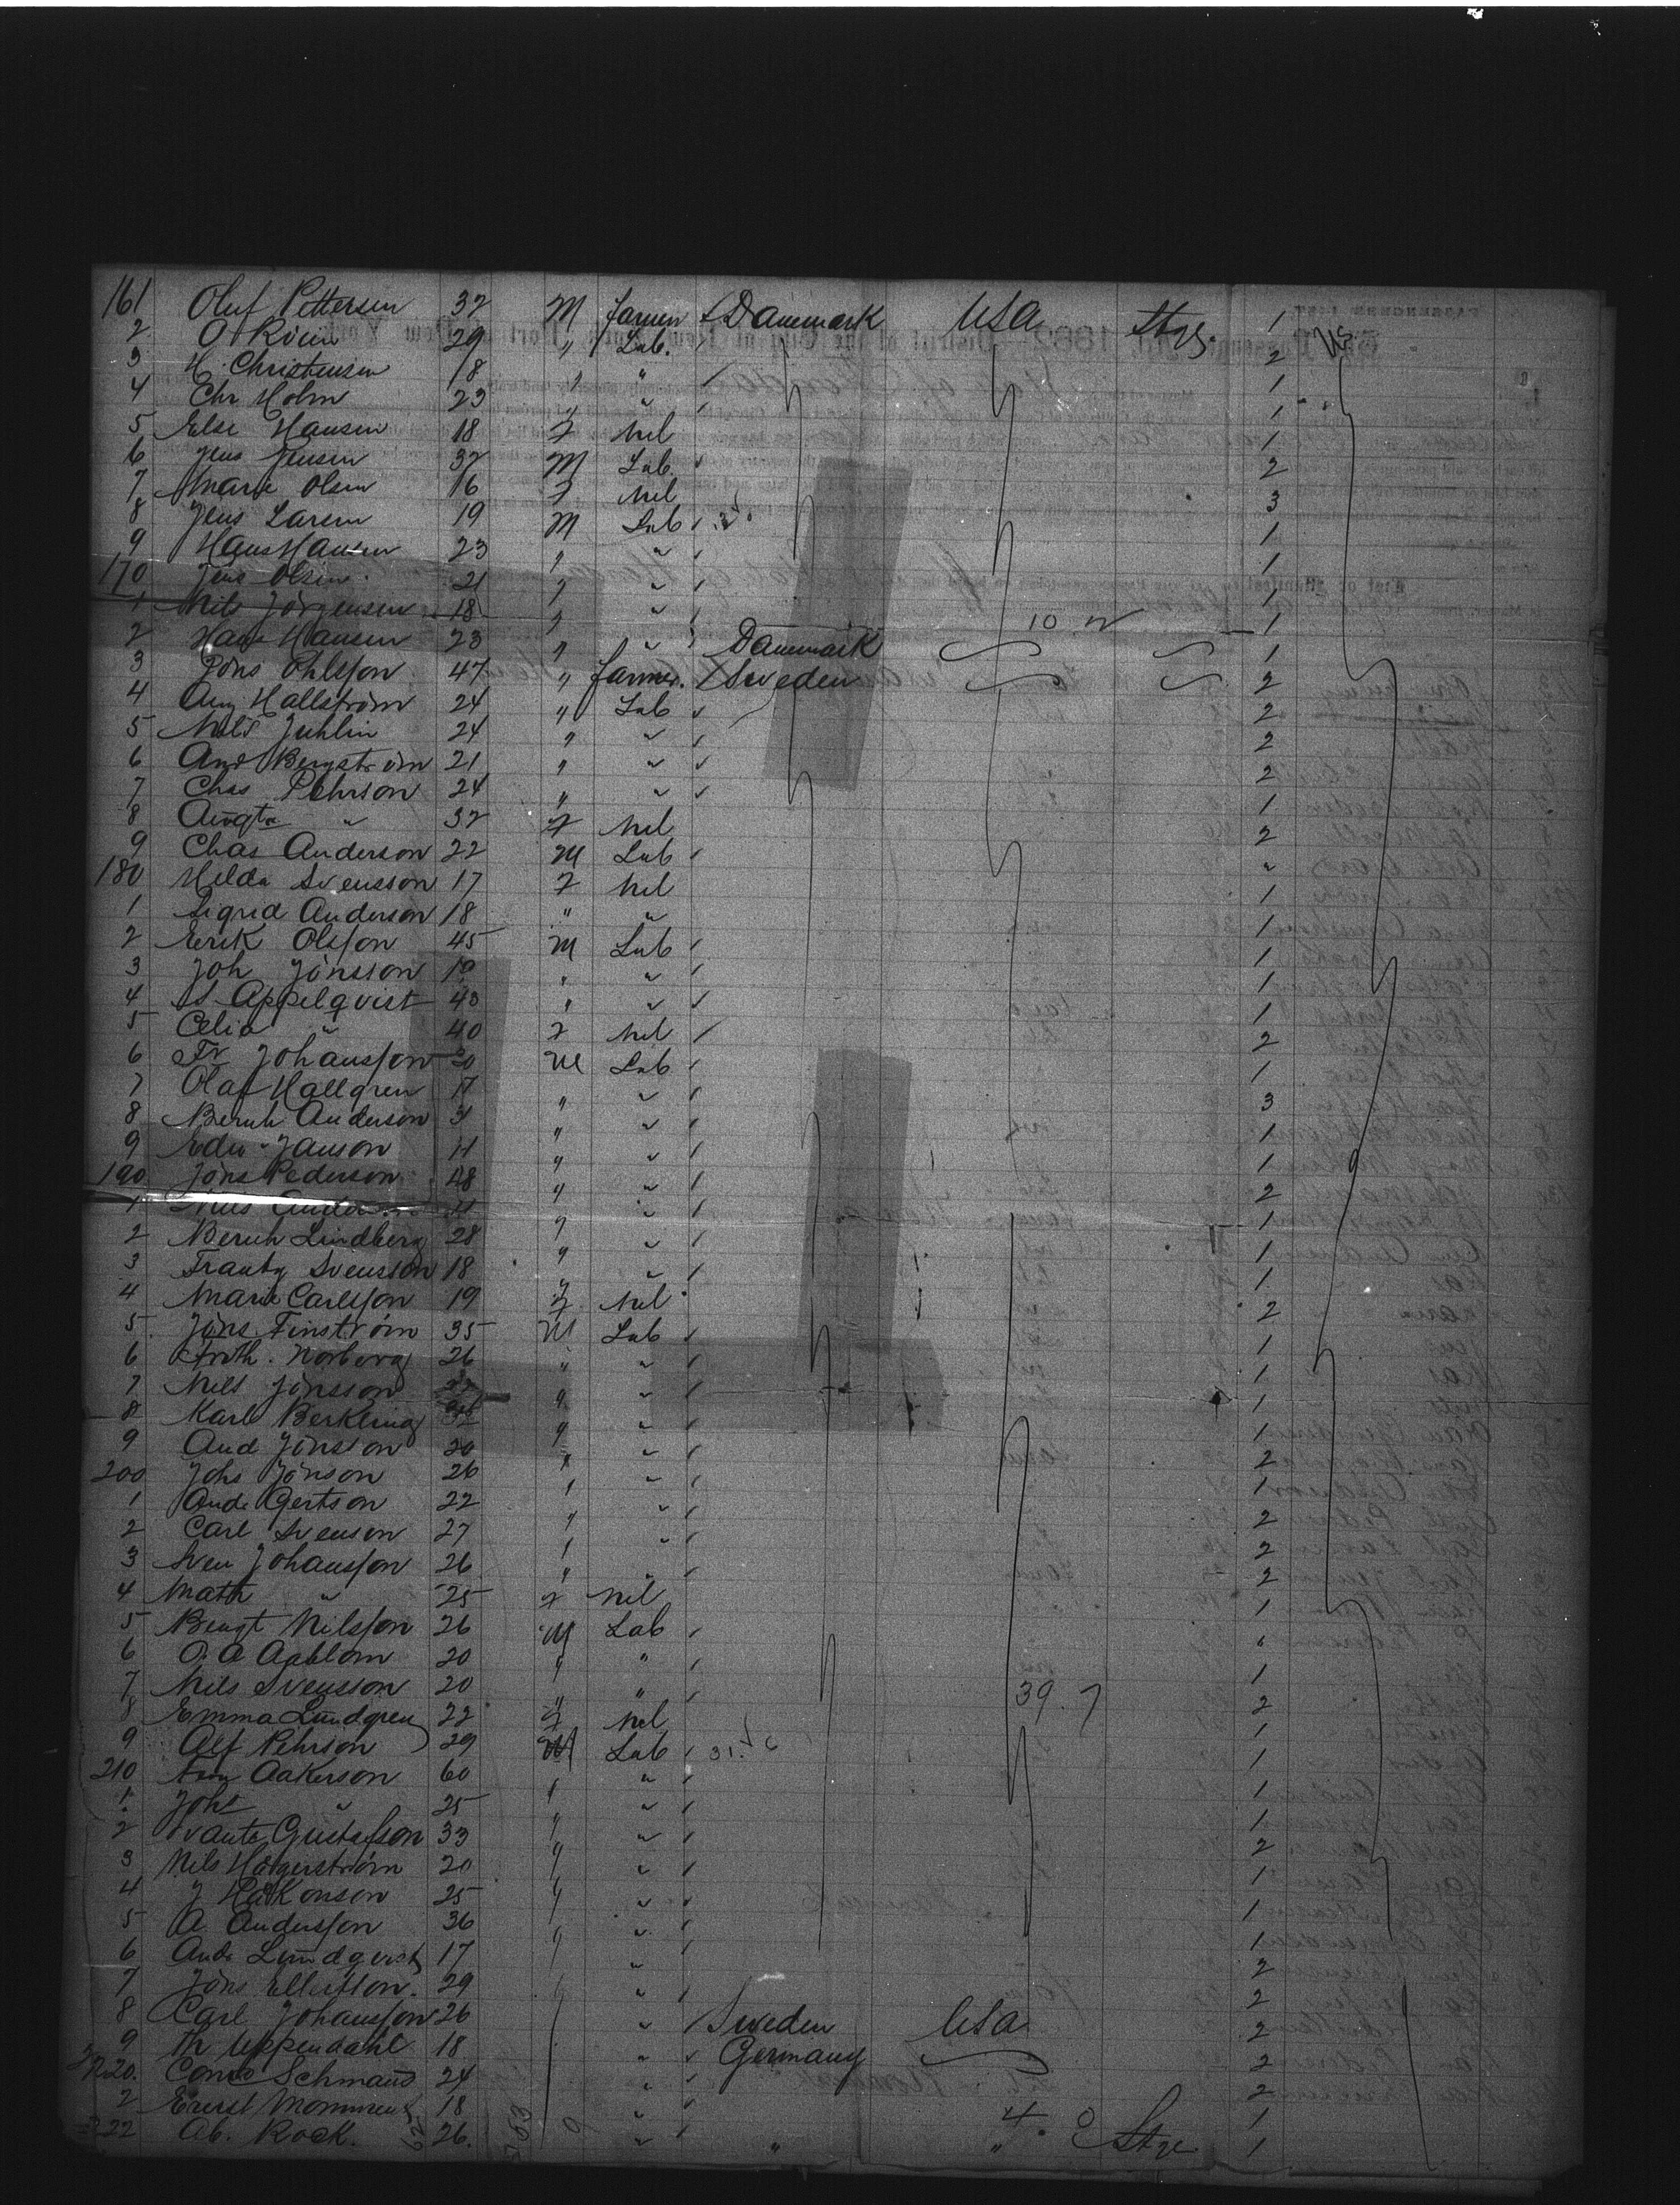 161 Oluf Pettersen 32 M farmer Danemark USA Stge. 1
2 O 29 " Lab. 2 NY
3 H. Christensen 18 " " 1
4 Chr Holm 23 " " 1
5 Else Hansen 18 F Nil 1
6 Jens Jensen 32 M Lab. 2
7 Marie Olsen 16 F Nil 3
8 Jens Larsen 19 M Lab 1
9 Hans Hansen 23 " " 1
170 Jens Olsen. 21 " " 1
1 Nils Jörgensen 18 " " 10 1
2 Hans Hansen 23 " " Danemark 1
3 Jöns Ohlsson 47 " farmer. Sweden 2
4 Aug Hallström 24 " Lab 2
5 Nils Juhlin 24 " " 2
6 And Bergström 21 " " 2
7 Chas Pehrson 24 " " 1
8 Augta " 32 F Nil 2
9 Chas Anderson 22 M Lab "
180 Hilda Svensson 17 F Nil 1
1 Sigrid Anderson 18 " " 1
2 Erik Olsson 45 M Lab 1
3 Joh Jönsson 19 " " 1
4 S Appelqvist 43 " " 1
5 Celia " 40 F Nil 2
6 Fr Johansson 20 M Lab 1
7 Olaf Hallgren 17 " " 3
8 Bernh Anderson 31 " " 1
9 Edw. Janson 11 " " 1
190 Jöns Pederson 48 " " 2
1 Nils " " 1
2 Bernh Lindberg 28 " " 1
3 Svensson 18 " " 1
4 Marie Carlsson 19 F Nil 2
5 Jöns Finström 35 M Lab 1
6 Norberg 26 " " 1
7 Nils Jönsson " " 1
8 Karl Berkling " " 1
9 And Jönsson 20 " " 2
200 Johs Jönson 26 " " 1
1 Ande Gertson 22 " " 2
2 Carl Svenson 27 " " 2
3 Sven Johansson 26 " " 2
4 Math " 25 F Nil 1
5 Bengt Nilsson 26 M Lab "
6 O. A 20 " " 1
7 Nils Svensson 20 " " 39. 7 2
8 Emma Lundgren 22 F Nil 1
9 Alf Pehrson 29 M Lab 31. 1
210 Aakerson 60 " " 1
1 Johs " 25 " " 1
2 Svante Gustafson 33 " " 2
3 Nils Hägerström 20 " " 1
4 J Håkonson 25 " " 1
5 A Andersson 36 " " 1
6 Ande Lundqvist 17 " " 2
7 Jöns 29 " " 2
8 Carl Johansson 26 " Sweden USA 2
9 Th Uppendahl 18 " Germany 2
220. Schmand 24 " 2
2 18 " 4. 0 1
222 Ab. Rock. 26. " " " Stge 1